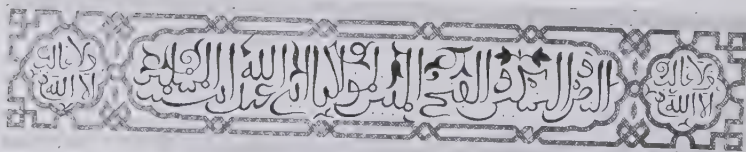 ولا غالب الا الله
النصر والتمكين والفتح المبين لمولانا ابي عبد الله امير المسلمين
ولا غالب الا الله